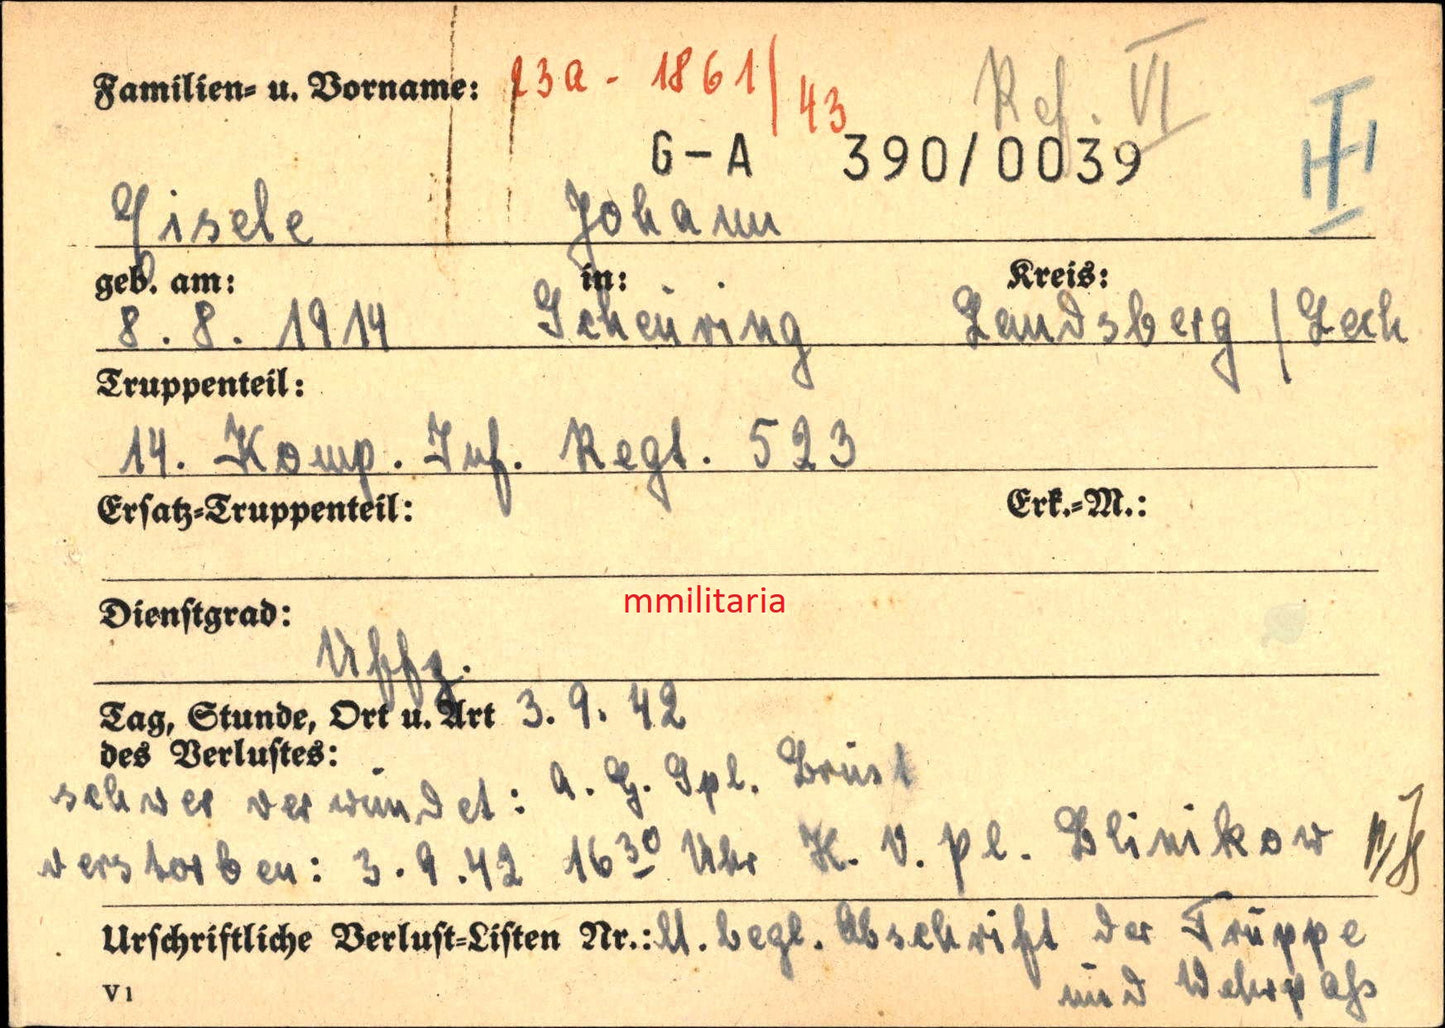 Familien- u. Vorname: 23a - 1861/43 Ref. VI
G-A 390/0039
Gisele Johann
geb. am: in: Kreis:
8. 8. 1914 Scheuring Landsberg / Lech
Truppenteil:
14. Komp. Inf. Regt. 523
Ersatz-Truppenteil: Erk.-M.:
mmilitaria
Dienstgrad:
Uffz.
Tag, Stunde, Ort u. Art 3. 9. 42
des Verlustes:
schwer verwundet: A. G. Spl. Brust
verstorben: 3. 9. 42 16 30 Uhr H. V. Pl. Blinikow
Urschriftliche Verlust-Listen Nr.: U. begl. Abschrift der Truppe
und Wehrpaß
V1